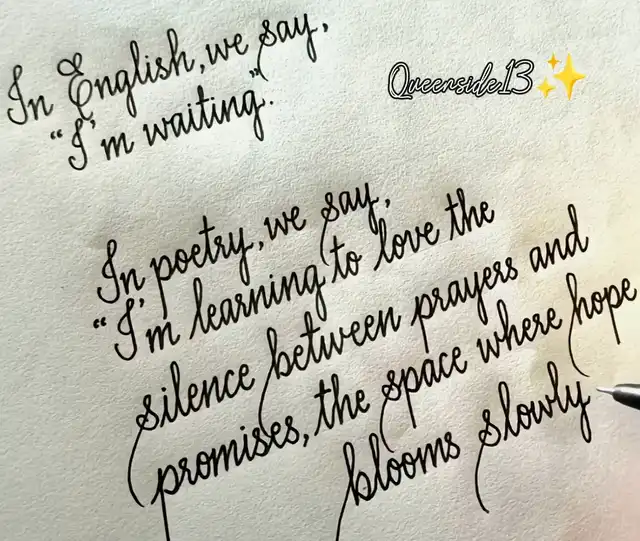 In English, we say,
"I'm waiting."
Queenside13✨
In poetry, we say,
"I'm learning to love the
silence between prayers and
promises, the space where hope
blooms slowly